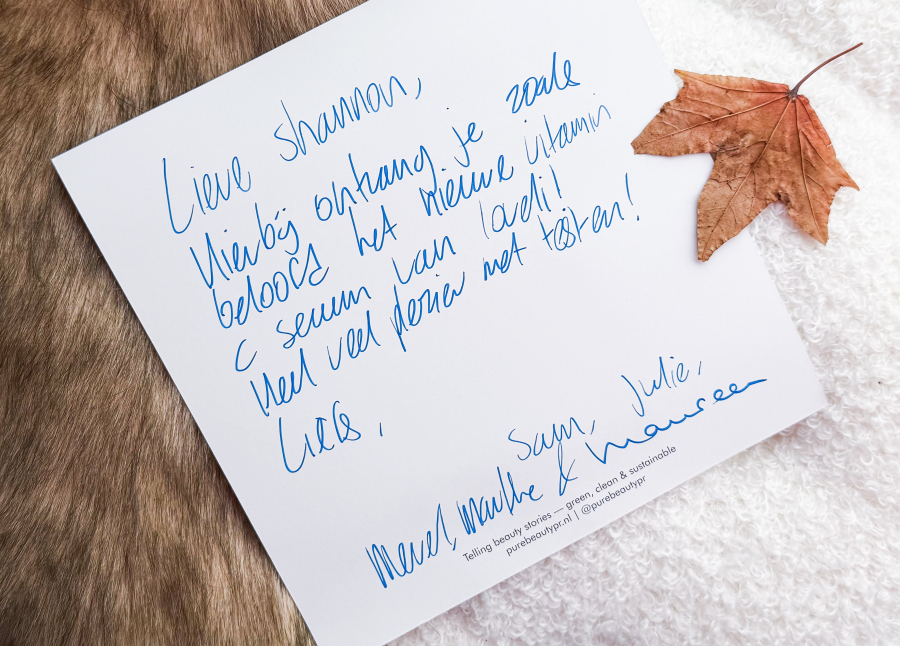 Lieve Shannon,
Hierbij ontvang je zoals
beloofd het nieuwe vitamin
C serum van loedi!
Heel veel plezier met testen!
Liefs,
Sam, Julie,
Merel, Marthe & Maureen
Telling beauty stories — green, clean & sustainable
purebeautypr.nl | @purebeautypr